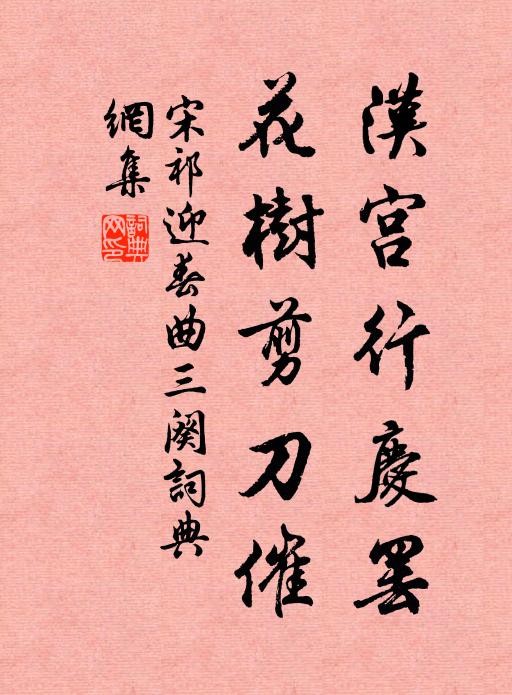 漢宮行慶罷
花樹剪刀催
宋祁迎春曲三闋詞典
網集
詞典网印